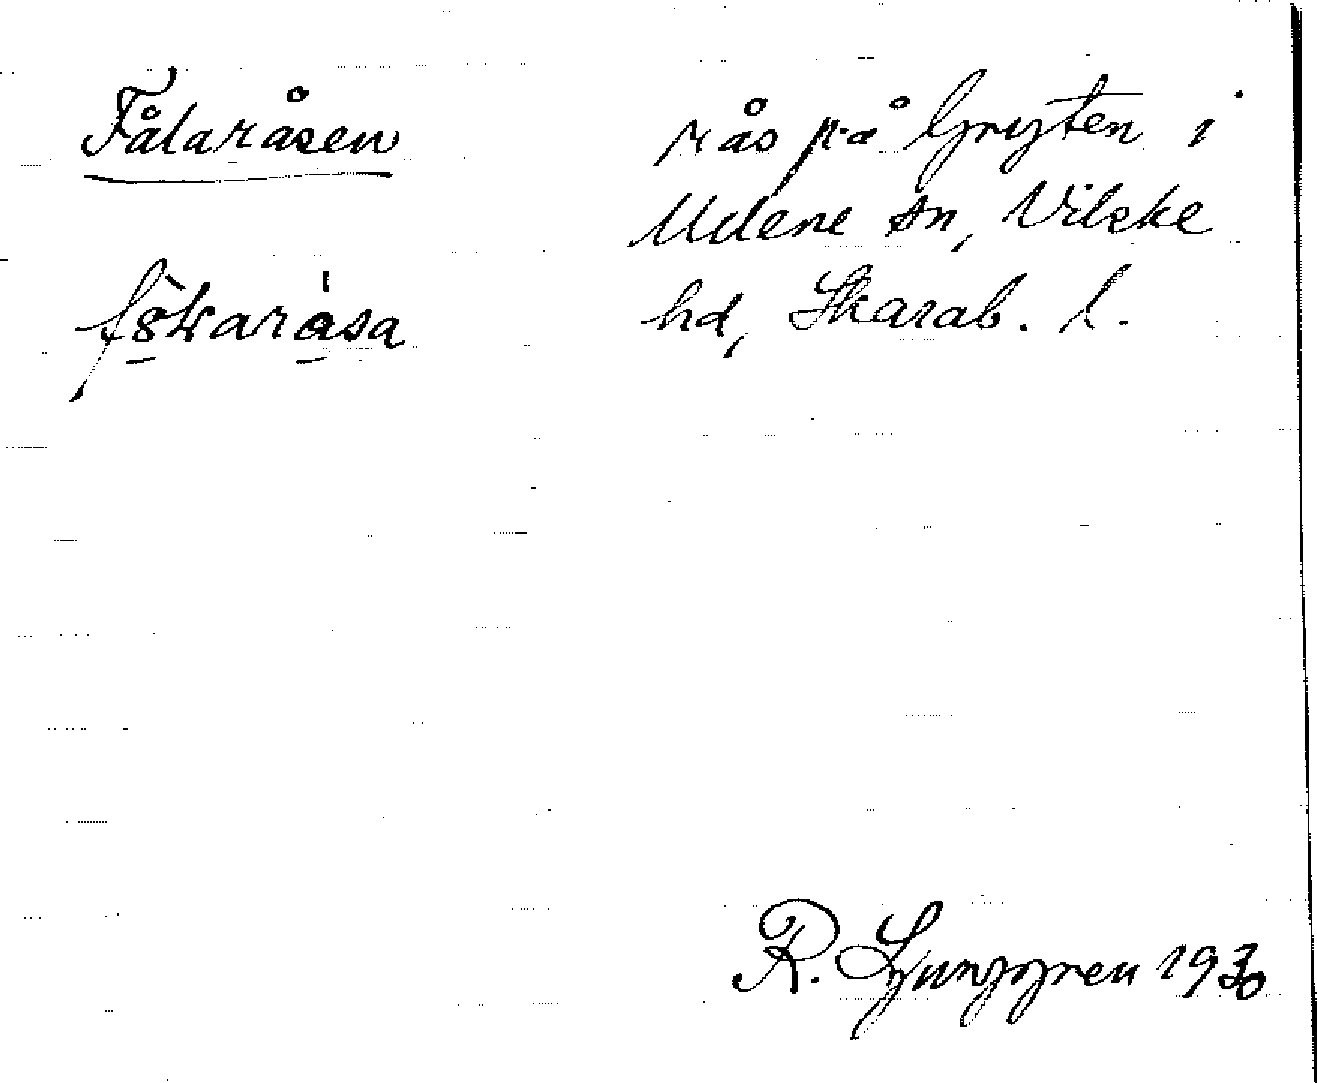 Fålaråsen
rås på Gryten i
Udene sn, Vilske
hd, Skarab. l.
R. Ljunggren 1930